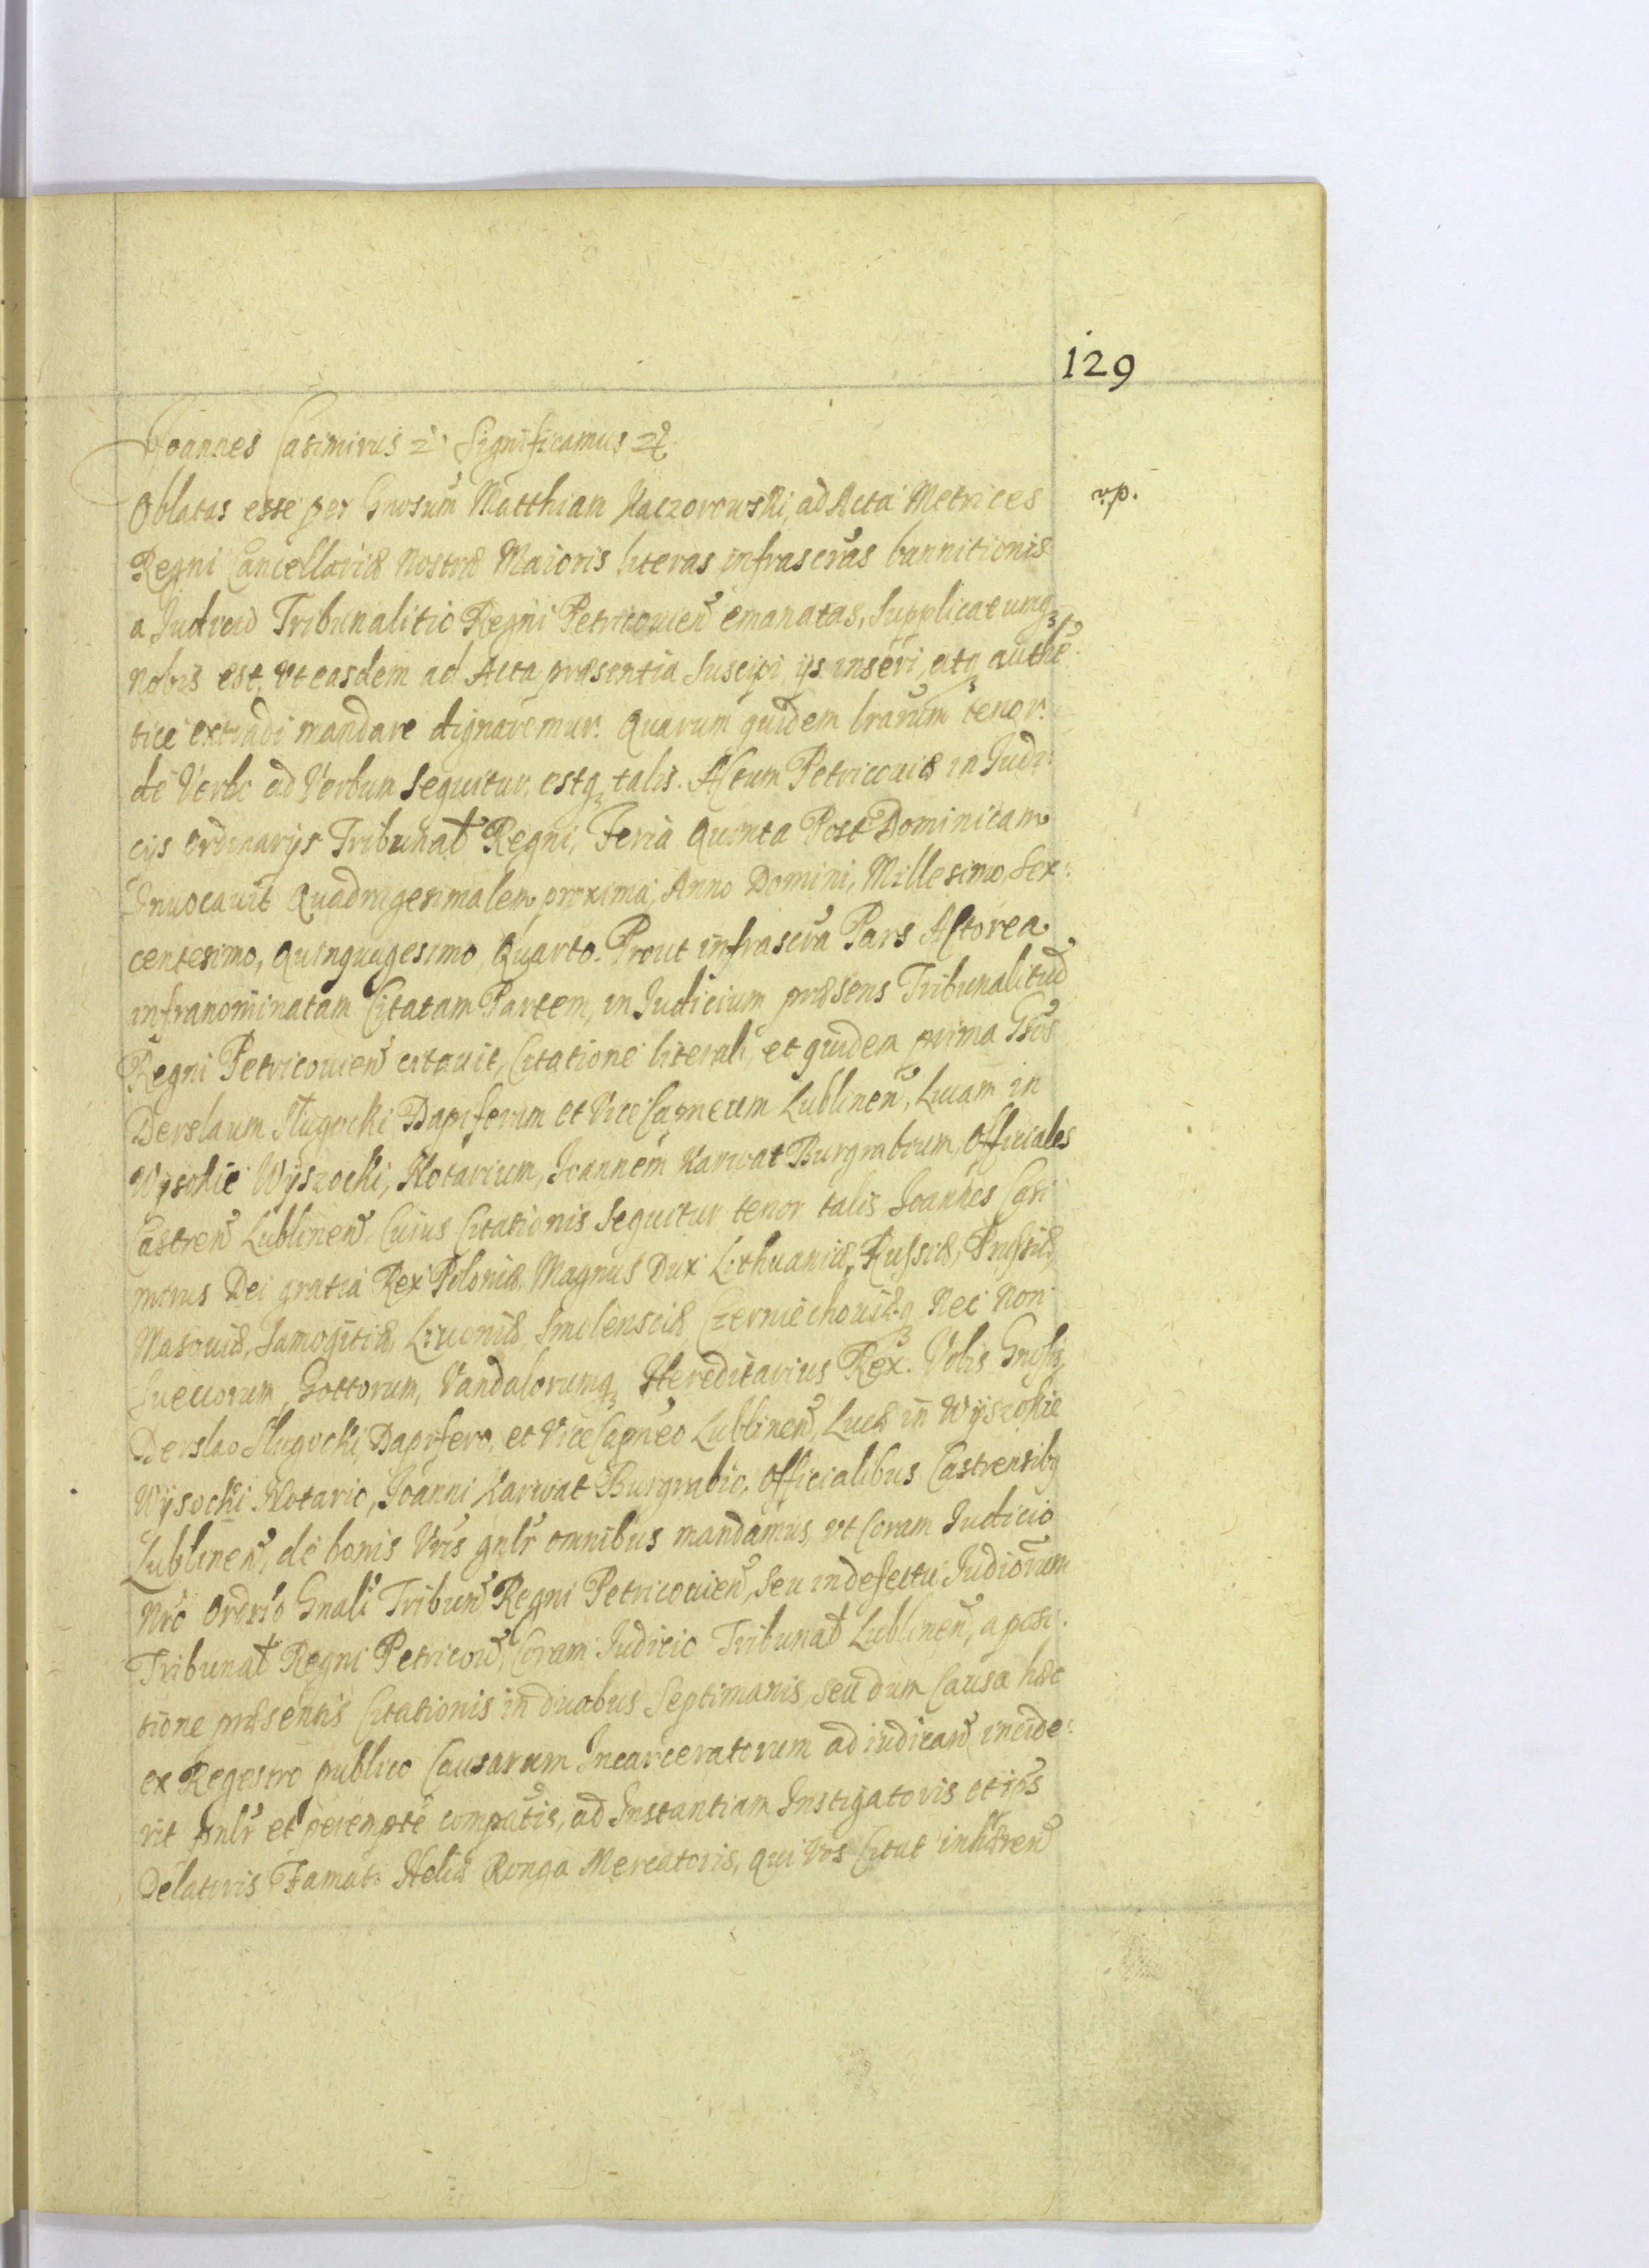 129
Joannes Casimirus Significamus
Oblatas esse per Gnosum Matthiam Kaczorowski, ad Acta Metrices
vp.
Regni Cancellariæ Nostræ Maioris literas infrascras bannitionis
a Judicio Tribunalitio Regni Petricouien emanatas, Supplicatumq3
nobis est, Vt easdem ad Acta præsentia Suscipi, ijs inseri, atq3 authē
tice extradi mandare dignaremur. Quarum quidem lrarum tenor
de Verbo ad Verbum Sequitur, estq3 talis. Actum Petricouiæ in Judi:
cijs Ordinarijs Tribunal Regni, Feria Quinta Post Dominicam
Inuocauit Quadragesimalem proxima, Anno Domini, Millesimo, Sex:
centesimo, Quinquagesimo Quarto. Prout infrascra Pars Actorea
infranominatam Citatam Partem, in Judicium præsens Tribunalitiū
Regni Petricouien citauit, Citatione literali, et quidem prima Gsos
Derslaum Sługocki Dapiferum et ViceCapneum Lublinen, Lucam in
Wysokie Wyszocki, Notarium, Joannem Karwat Burgrabium, Officiales
Castren Lublinen. Cuius Citationis Sequitur tenor talis Joannes Casi
mirus Dei gratia Rex Poloniæ, Magnus Dux Lithuaniæ, Russiæ, Prussiæ,
Masouiæ, Samogitiæ, Liuoniæ, Smolensciæ Czerniechouiæq3 Nec Non
Sueuorum, Gottorum, Vandalorumq3 Hereditarius Rex. Vobis Gnosis
Derslao Sługocki Dapifero, et ViceCapneo Lublinen, Lucæ in Wyszokie
Wysocki Notario, Joanni Karwat Burgrabio, Officialibus Castrensibq
Lublinen, de bonis Vris gnlr omnibus mandamus, vt Coram Judicio
Nro Ordrio Gnali Tribun Regni Petricouien, Seu in defectu Judiorum
Tribunal Regni Petricou, Coram Judicio Tribunal Lublinen, a posi:
tione præsentis Citationis in duabus Septimanis, Seu dum Causa hæc
ex Regestro publico Causarum Incarceratorum ad iudican incide:
rit pnlr et perempte compatis, ad Instantiam Instigatoris et ips
Delatoris Famat Heliæ Ronga Mercatoris, qui Vos Citat inhæren